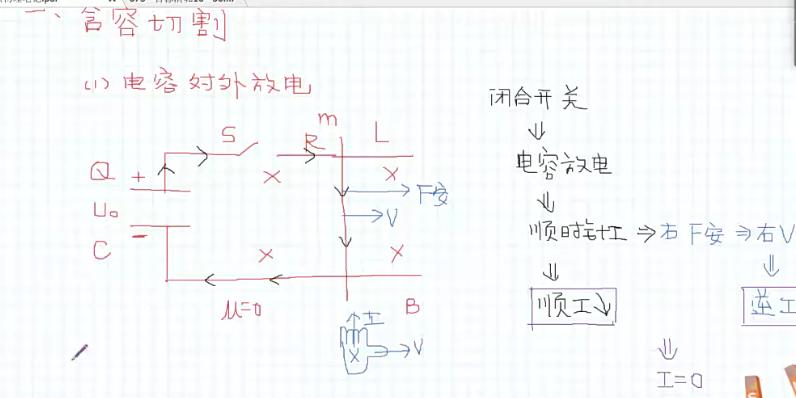 一、含容切割
(1) 电容对外放电
闭合开关
⇓
电容放电
⇓
顺时针I ⇒ 右F安 ⇒ 右V
⇓ ⇓
顺I↘ 逆I
⇓
I=0
m
S R L
Q + × ×
F安
U₀ V
C - × ×
μ=0 B
I
× V